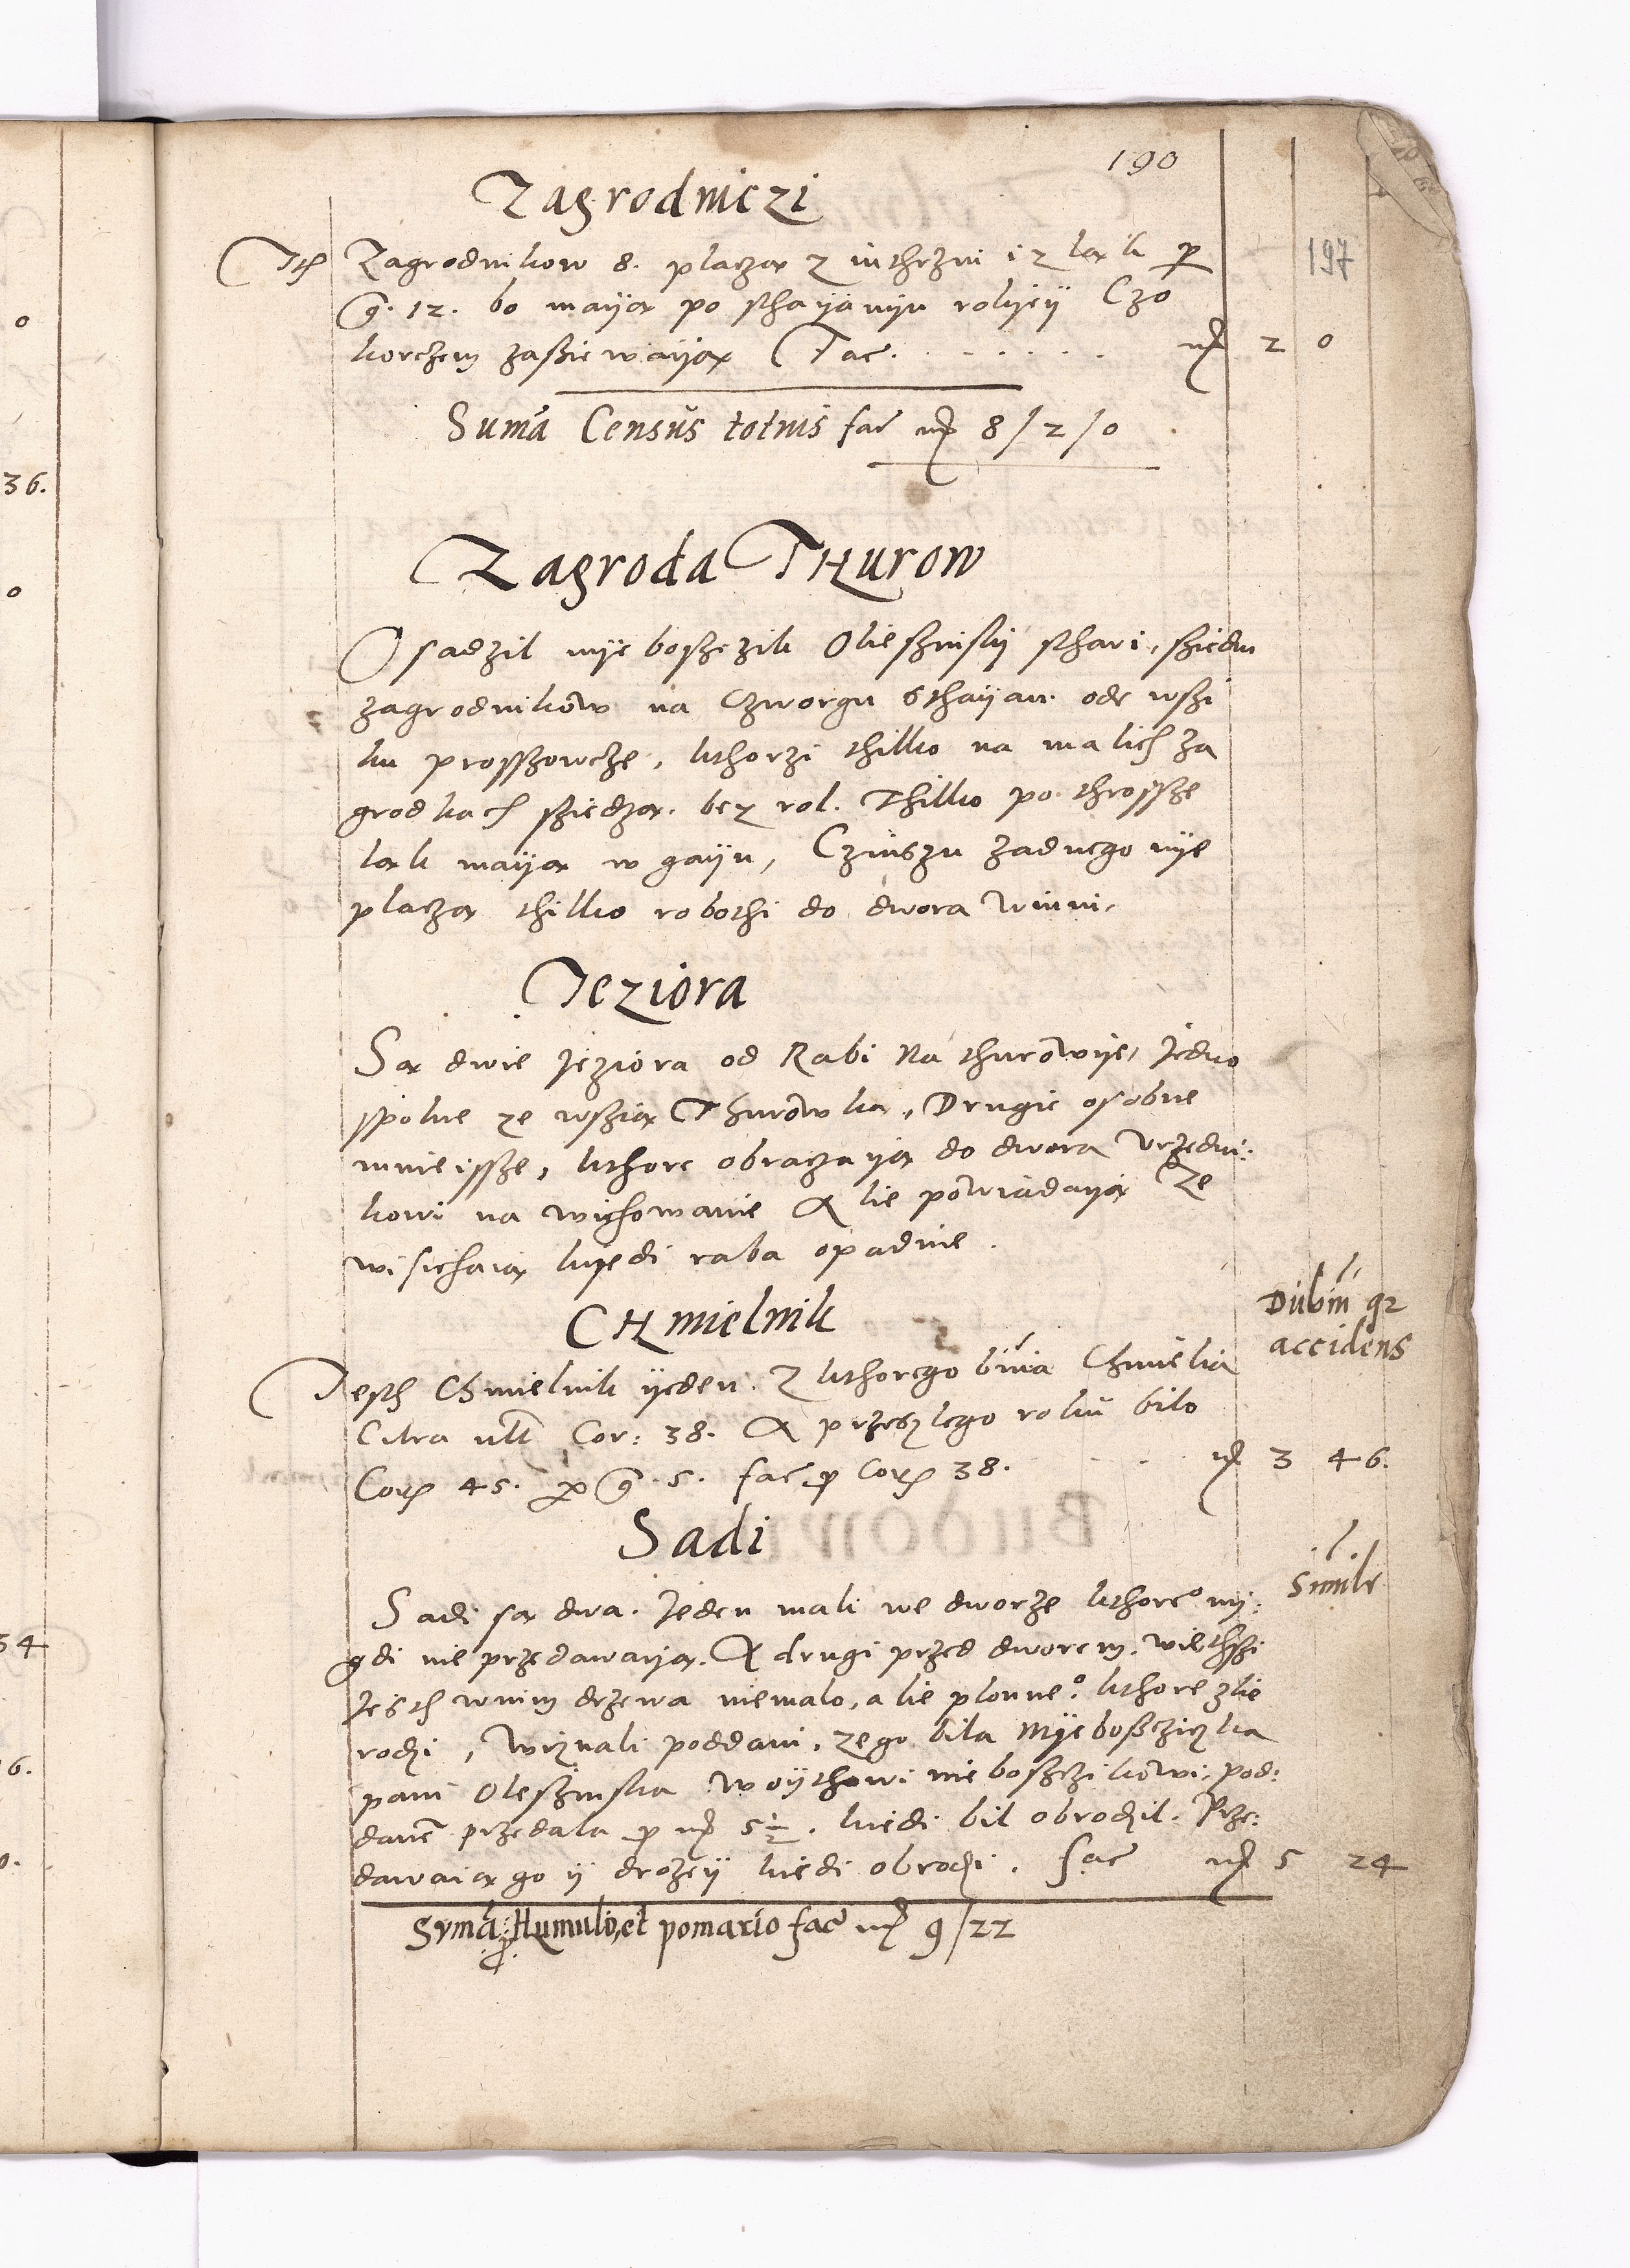 190
197
Zagrodniczi
Ith Zagrodnikow 8. placzą z intherzni i z łąk p
g. 12. bo mayą po sthayaniu roliey Czo
korczem zassiewayą Fac. . . . . . . mr 2 0
Suma Census totius fac mr 8/2/0
Zagroda THurow
Osadzil nyeboszczik Oliesznisky sthari, sziedm
zagrodnikow na Czworgu Sthayan. ode wszi
ku prosszowcze, kthorzi thilko na malich za
grodkach sziedzą. bez rol. Thilko po throssze
łąk mayą w gayu, Czinszu zadnego nye
placzą thilko robothi do dwora winni.
Jeziora
Są dwie Jeziora od Rabi Na thurowye, Jedno
spolne ze wszią Thurowką, Drugie osobne
mnieissze, kthore obraczayą do dwora Vrzedni:
kowi na wichowanie A lie powiadayą Ze
wisichaią kyedi raba opadnie.
CHmielnik
Jesth Chmielnik yeden. Z kthorego biwa Chmielia
Citra vlt Cor: 38. A przeszlego roku bilo
Cor 45. p g. 5. fac p Cor 38. . . . mr 3 46.
Dubm qz
accidens
Sadi
Sadi są dwa. Jeden mali we dworze kthore° ni:
gdi nie przedawayą. A drugi przed dworem. wiethszi
Jesth wnim drzewa niemalo, a lie plonne°. kthore zlie
rodzi, Wiznali poddani, zego bila Nyeboszcziczka
pani Oleszinska Woythowi nieboszczikowi, pod:
dane przedala p mr 5½. kiedi bil obrodzil. Prze:
dawaią go y drozey kiedi obrodzi. fac mr 5 24
Simile
Suma p Humulo, et pomario fac mr 9/22
0
36.
0
34
6.